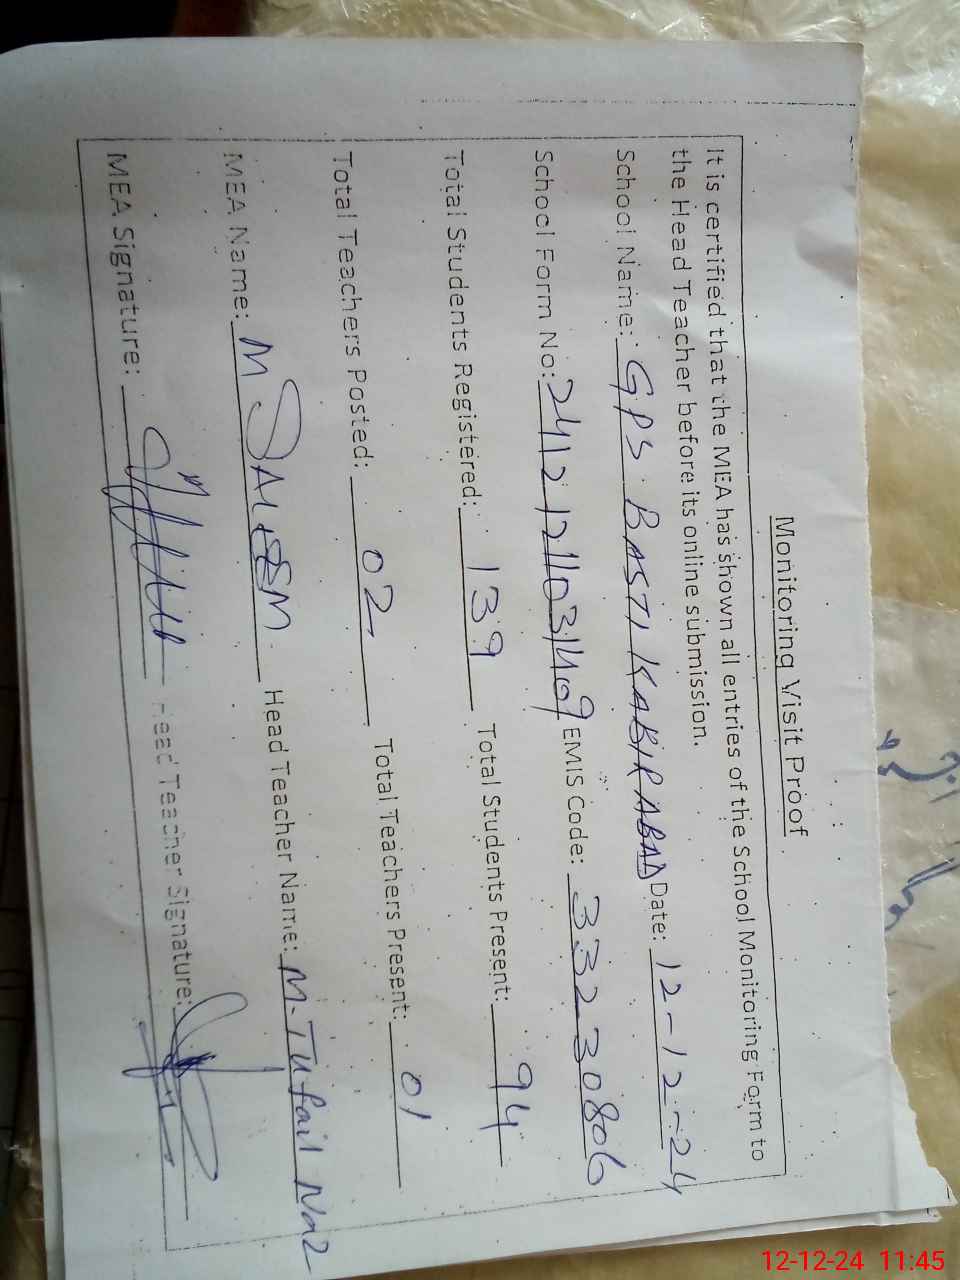 Monitoring Visit Proof
It is certified that the MEA has shown all entries of the School Monitoring Form to
the Head Teacher before its online submission.
School Name: GPS BASTI KABIR ABAD Date: 12-12-24
School Form No: 24121211031409 EMIS Code: 33230806
Total Students Registered: 139 Total Students Present: 94
Total Teachers Posted: 02 Total Teachers Present: 01
MEA Name: M SALEEM Head Teacher Name: M. Tufail
MEA Signature: Head Teacher Signature:
12-12-24 11:45